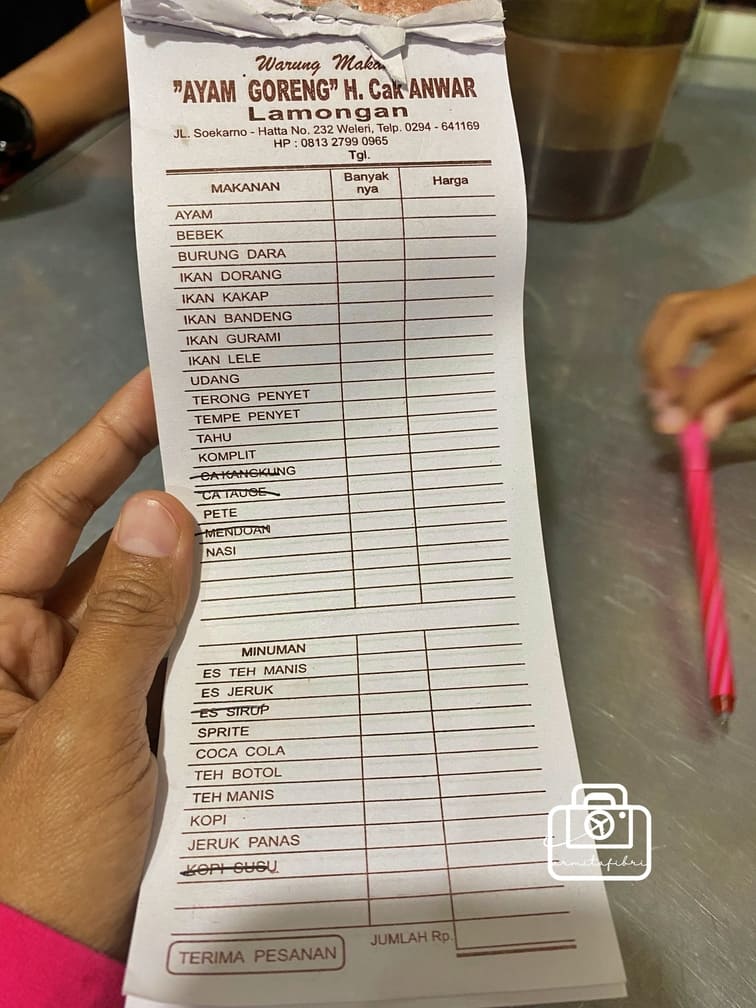 Warung Makan
"AYAM GORENG" H. Cak ANWAR
Lamongan
JL. Soekarno - Hatta No. 232 Weleri, Telp. 0294 - 641169
HP : 0813 2799 0965
Tgl.
MAKANAN Banyak nya Harga
AYAM
BEBEK
BURUNG DARA
IKAN DORANG
IKAN KAKAP
IKAN BANDENG
IKAN GURAMI
IKAN LELE
UDANG
TERONG PENYET
TEMPE PENYET
TAHU
KOMPLIT
CA KANGKUNG
CA TAUGE
PETE
MENDOAN
NASI
MINUMAN
ES TEH MANIS
ES JERUK
ES SIRUP
SPRITE
COCA COLA
TEH BOTOL
TEH MANIS
KOPI
JERUK PANAS
KOPI SUSU
TERIMA PESANAN JUMLAH Rp.